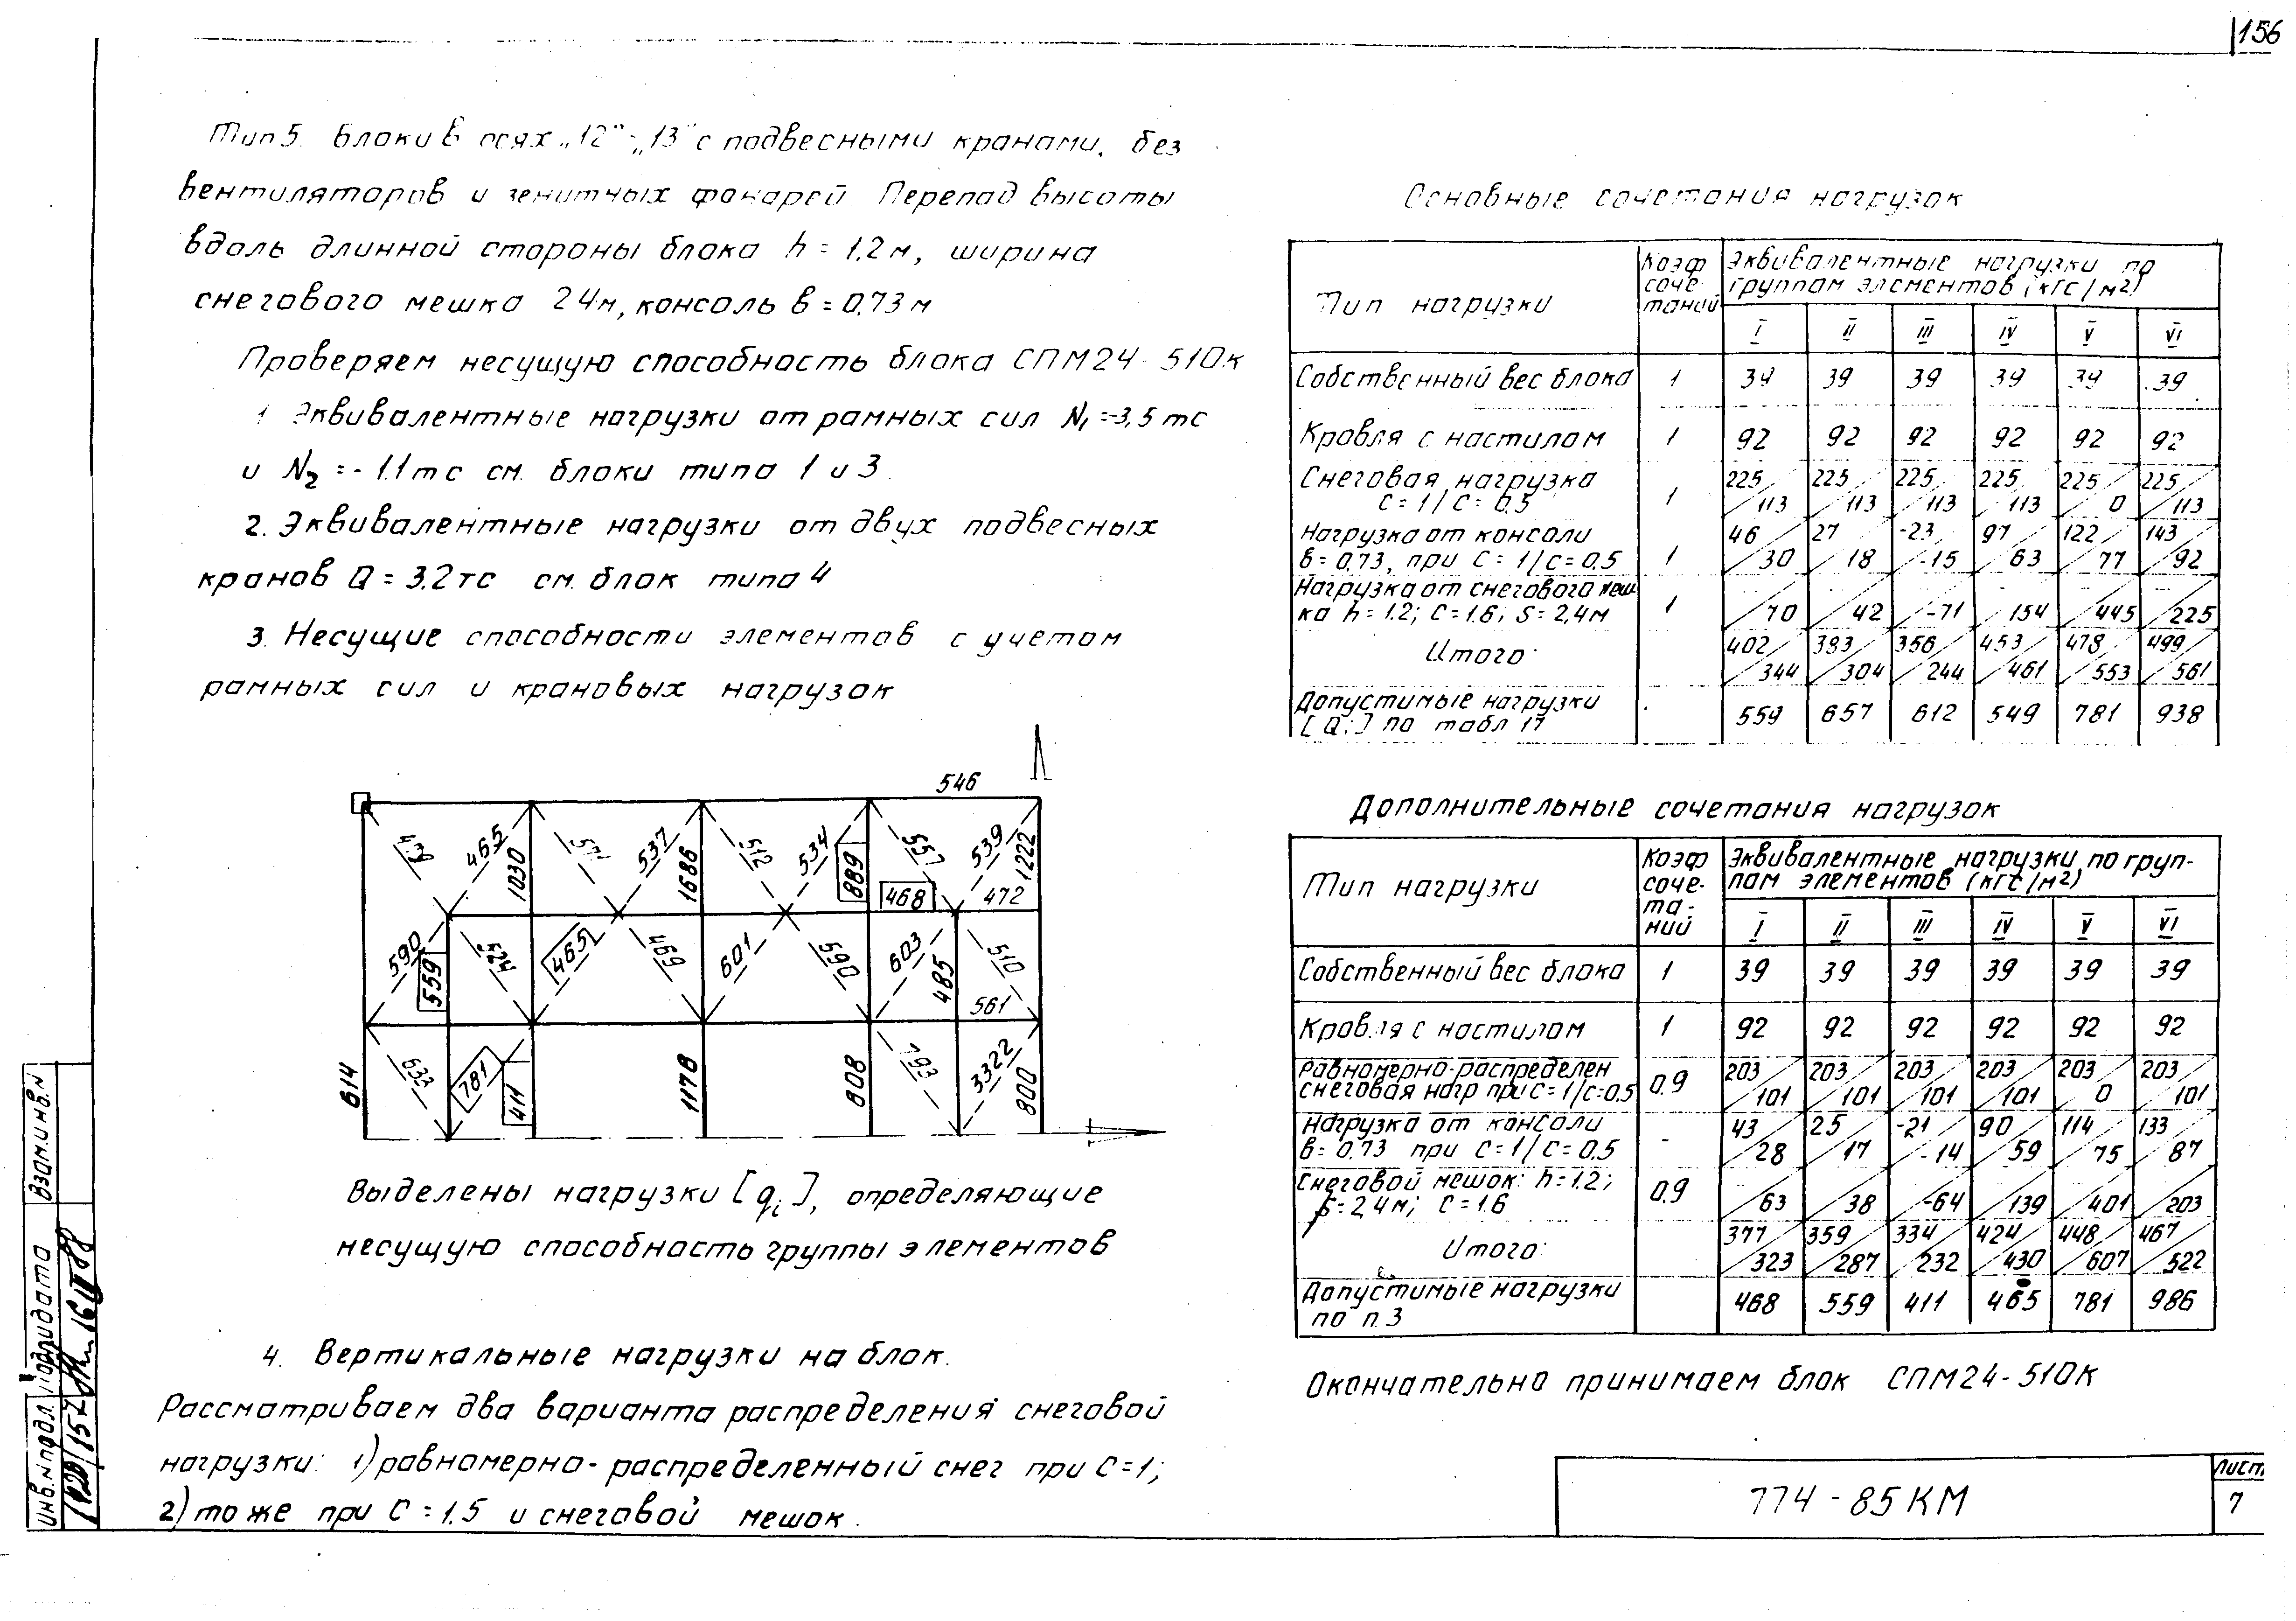 156
Тип 5. Блоки в осях „12"-„13" с подвесными кранами, без
вентиляторов и зенитных фонарей. Перепад высоты
вдоль длинной стороны блока h = 1.2 м, ширина
снегового мешка 2 4м, консоль в = 0,73 м
Проверяем несущую способность блока СПМ24-510к
1 Эквивалентные нагрузки от рамных сил N₁ =-3,5 тс
и N₂ = - 1.1 тс см. блоки типа 1 и 3.
2. Эквивалентные нагрузки от двух подвесных
кранов Q = 3.2 тс см. блок типа 4
3. Несущие способности элементов с учетом
рамных сил и крановых нагрузок
546
465 1030 537 1686 512 534 889 557 539 1222
468 472
590 559 524 465 469 601 590 603 485 510
561
614 633 781 411 1178 808 793 3322 800
Выделены нагрузки [qi], определяющие
несущую способность группы элементов
4. Вертикальные нагрузки на блок.
Рассматриваем два варианта распределения снеговой
нагрузки: 1) равномерно-распределенный снег при С=1;
2) то же при С = 1.5 и снеговой мешок.
Основные сочетания нагрузок
Тип нагрузки | Коэф соче-таний | Эквивалентные нагрузки по группам элементов (кгс/м2)
I II III IV V VI
Собственный вес блока 1 39 39 39 39 39 39
Кровля с настилом 1 92 92 92 92 92 92
Снеговая нагрузка 225 225 225 225 225 225
С = 1 / С = 0.5 1 113 113 113 113 0 113
Нагрузка от консоли 46 27 -23 97 122 143
в = 0.73, при С = 1/С = 0.5 1 30 18 -15 63 77 92
Нагрузка от снегового меш-
ка h = 1.2; С = 1.6; S = 2,4м 1 70 42 -71 154 445 225
Итого: 402 383 356 453 478 499
344 304 244 461 553 561
Допустимые нагрузки
[Qi] по табл 17 559 657 612 549 781 938
Дополнительные сочетания нагрузок
Тип нагрузки | Коэф. соче-та-ний | Эквивалентные нагрузки по груп-пам элементов (кгс/м2)
I II III IV V VI
Собственный вес блока 1 39 39 39 39 39 39
Кровля с настилом 1 92 92 92 92 92 92
Равномерно-распределен 203 203 203 203 203 203
снеговая нагр при С = 1/С=0.5 0.9 101 101 101 101 0 101
Нагрузка от консоли 43 25 -21 90 114 133
в = 0.73 при С = 1/С = 0.5 - 28 17 -14 59 75 87
Снеговой мешок: h = 1.2;
S = 2,4 м; С = 1.6 0.9 63 38 -64 139 401 203
Итого: 377 359 334 424 448 467
323 287 232 430 607 522
Допустимые нагрузки
по п. 3 468 559 411 465 781 986
Окончательно принимаем блок СПМ24-510К
774-85КМ
Лист
7
Взам.инв.N
Подп.и дата
16 II 88
Инв.N подл.